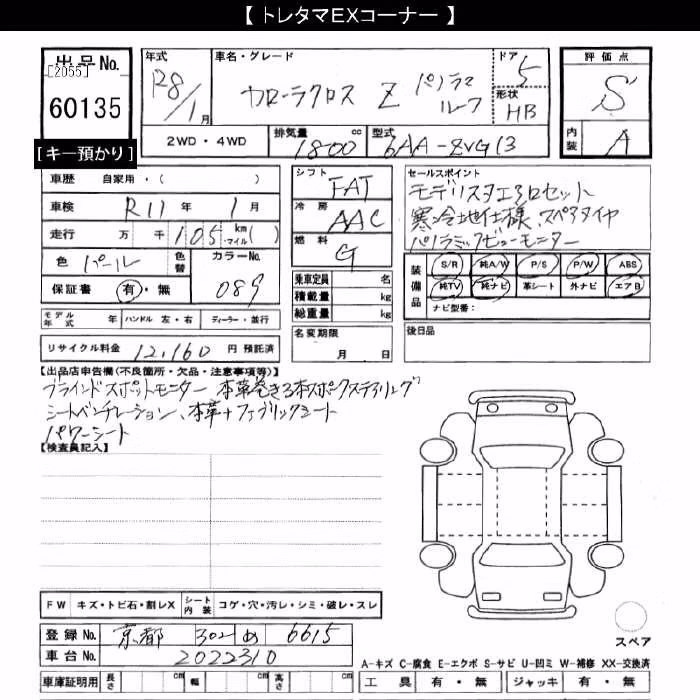 【 トレタマEXコーナー 】
出品No.
[2055]
60135
[キー預かり]
年式
R8/1月
車名・グレード
カローラクロス Z パノラマルーフ
ドア
5
形状
HB
評価点
S
内装
A
2WD・4WD
排気量
1800 cc
型式
6AA-ZVG13
車歴 自家用・( )
車検 R11年 1月
走行 万 千 105 km マイル( )
色 パール
色替
カラーNo.
089
保証書 有・無
モデル年式 年 ハンドル 左・右 ディーラー・並行
リサイクル料金 12,160 円 預託済
シフト FAT
冷房 AAC
燃料 G
乗車定員 名
積載量 kg
総重量 kg
名変期限
月 日
セールスポイント
モデリスタエアロセット
寒冷地仕様、スペアタイヤ
パノラミックビューモニター
装備品
S/R 純A/W P/S P/W ABS
純TV 純ナビ 革シート 外ナビ エアB
ナビ型番:
後日品
【出品店申告欄(不良箇所・欠品・注意事項等)】
ブラインドスポットモニター 本革巻き3本スポークステアリング
シートベンチレーション、本革+ファブリックシート
パワーシート
【検査員記入】
FW キズ・トビ石・割レX シート内装 コゲ・穴・汚レ・シミ・破レ・スレ
登録No. 京都 302 め 6615
車台No. 2022310
車庫証明用 長さ cm 幅 cm 高さ cm
スペア
A-キズ C-腐食 E-エクボ S-サビ U-凹ミ W-補修 XX-交換済
工具 有・無 ジャッキ 有・無